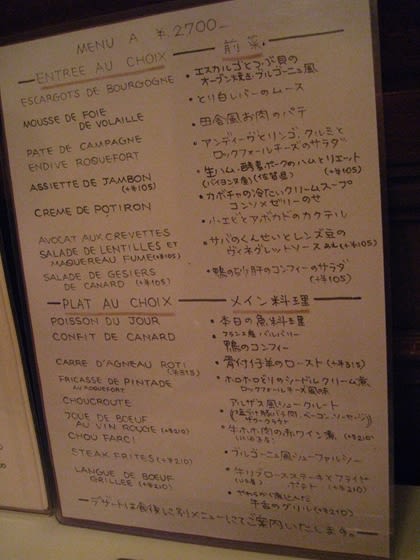 MENU A ¥2700-
ENTREE AU CHOIX 前菜
ESCARGOTS DE BOURGOGNE
・エスカルゴとつぶ貝の
オーブン焼き ブルゴーニュ風
MOUSSE DE FOIE
DE VOLAILLE
・とり白レバーのムース
PATE DE CAMPAGNE
・田舎風お肉のパテ
ENDIVE ROQUEFORT
・アンディーヴとリンゴ、クルミと
ロックフォールチーズのサラダ
ASSIETTE DE JAMBON
(+¥105)
・生ハム、酵素ポークのハムとリエット
(バイヨンヌ産) (佐賀産) (+¥105)
CREME DE POTIRON
・カボチャの冷たいクリームスープ
コンソメゼリーのせ
AVOCAT AUX CREVETTES
・小エビとアボカドのカクテル
SALADE DE LENTILLES ET
MAQUEREAU FUME (+¥105)
・サバのくんせいとレンズ豆の
ヴィネグレットソースあえ (+¥105)
SALADE DE GESIERS
DE CANARD (+¥105)
・鴨の砂肝のコンフィーのサラダ
(+¥105)
PLAT AU CHOIX メイン料理
POISSON DU JOUR
・本日の魚料理
CONFIT DE CANARD
・フランス産バルバリー
鴨のコンフィー
CARRE D'AGNEAU ROTI
(+¥315)
・骨付仔羊のロースト (+¥315)
FRICASSE DE PINTADE
AU ROQUEFORT
・ホロホロどりのシードルクリーム煮
ロックフォールチーズ風味
CHOUCROUTE
・アルザス風シュークルート
(塩づけ豚バラ肉、ベーコン、ソーセージ
ザワークラウト)
JOUE DE BOEUF
AU VIN ROUGE (+¥210)
・牛ホホ肉の赤ワイン煮 (+¥210)
CHOU FARCI
・ブルゴーニュ風シューファルシー
STEAK FRITES (+¥210)
・牛リブロースステーキとフライド
ポテト (+¥210)
LANGUE DE BOEUF
GRILLEE (+¥210)
・やわらかく煮込んだ
牛舌のグリル (+¥210)
ーデザートは食後に別メニューにてご案内いたします。